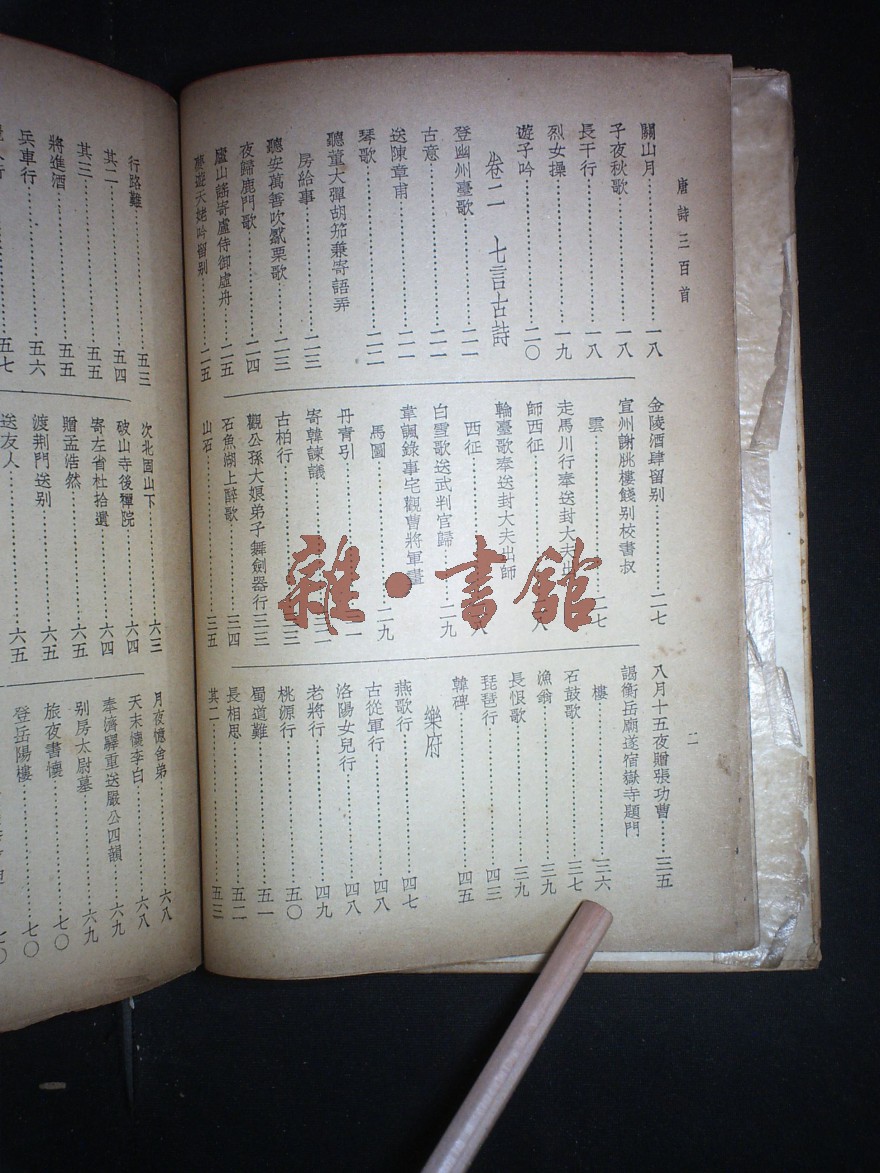 唐詩三百首
二
關山月………………一八
子夜秋歌………………一八
長干行………………一八
烈女操………………一九
遊子吟………………二〇
卷二 七言古詩
登幽州臺歌………………二一
古意………………二一
送陳章甫………………二一
琴歌………………二二
聽董大彈胡笳兼寄語弄
房給事………………二三
聽安萬善吹觱栗歌………………二三
夜歸鹿門歌………………二四
廬山謠寄盧侍御虛舟………………二五
夢遊天姥吟留別………………二五
金陵酒肆留別………………二七
宣州謝脁樓餞別校書叔
雲………………二七
走馬川行奉送封大夫出
師西征………………八
輪臺歌奉送封大夫出師
西征………………八
白雪歌送武判官歸………………二九
韋諷錄事宅觀曹將軍畫
馬圖………………二九
丹青引………………一
寄韓諫議………………
古柏行………………三
觀公孫大娘弟子舞劍器行………………三三
石魚湖上醉歌………………三四
山石………………三五
八月十五夜贈張功曹………………三五
謁衡岳廟遂宿嶽寺題門
樓………………三六
石鼓歌………………三七
漁翁………………三九
長恨歌………………三九
琵琶行………………四三
韓碑………………四五
樂府
燕歌行………………四七
古從軍行………………四八
洛陽女兒行………………四八
老將行………………四九
桃源行………………五〇
蜀道難………………五一
長相思………………五二
其二………………五三
行路難………………五三
其二………………五四
其三………………五五
將進酒………………五五
兵車行………………五六
行………………五七
次北固山下………………六三
破山寺後禪院………………六四
寄左省杜拾遺………………六四
贈孟浩然………………六五
渡荆門送別………………六五
送友人………………六五
月夜憶舍弟………………六八
天末懷李白………………六八
奉濟驛重送嚴公四韻………………六九
別房太尉墓………………六九
旅夜書懷………………七〇
登岳陽樓………………七〇
七〇
雜·書館